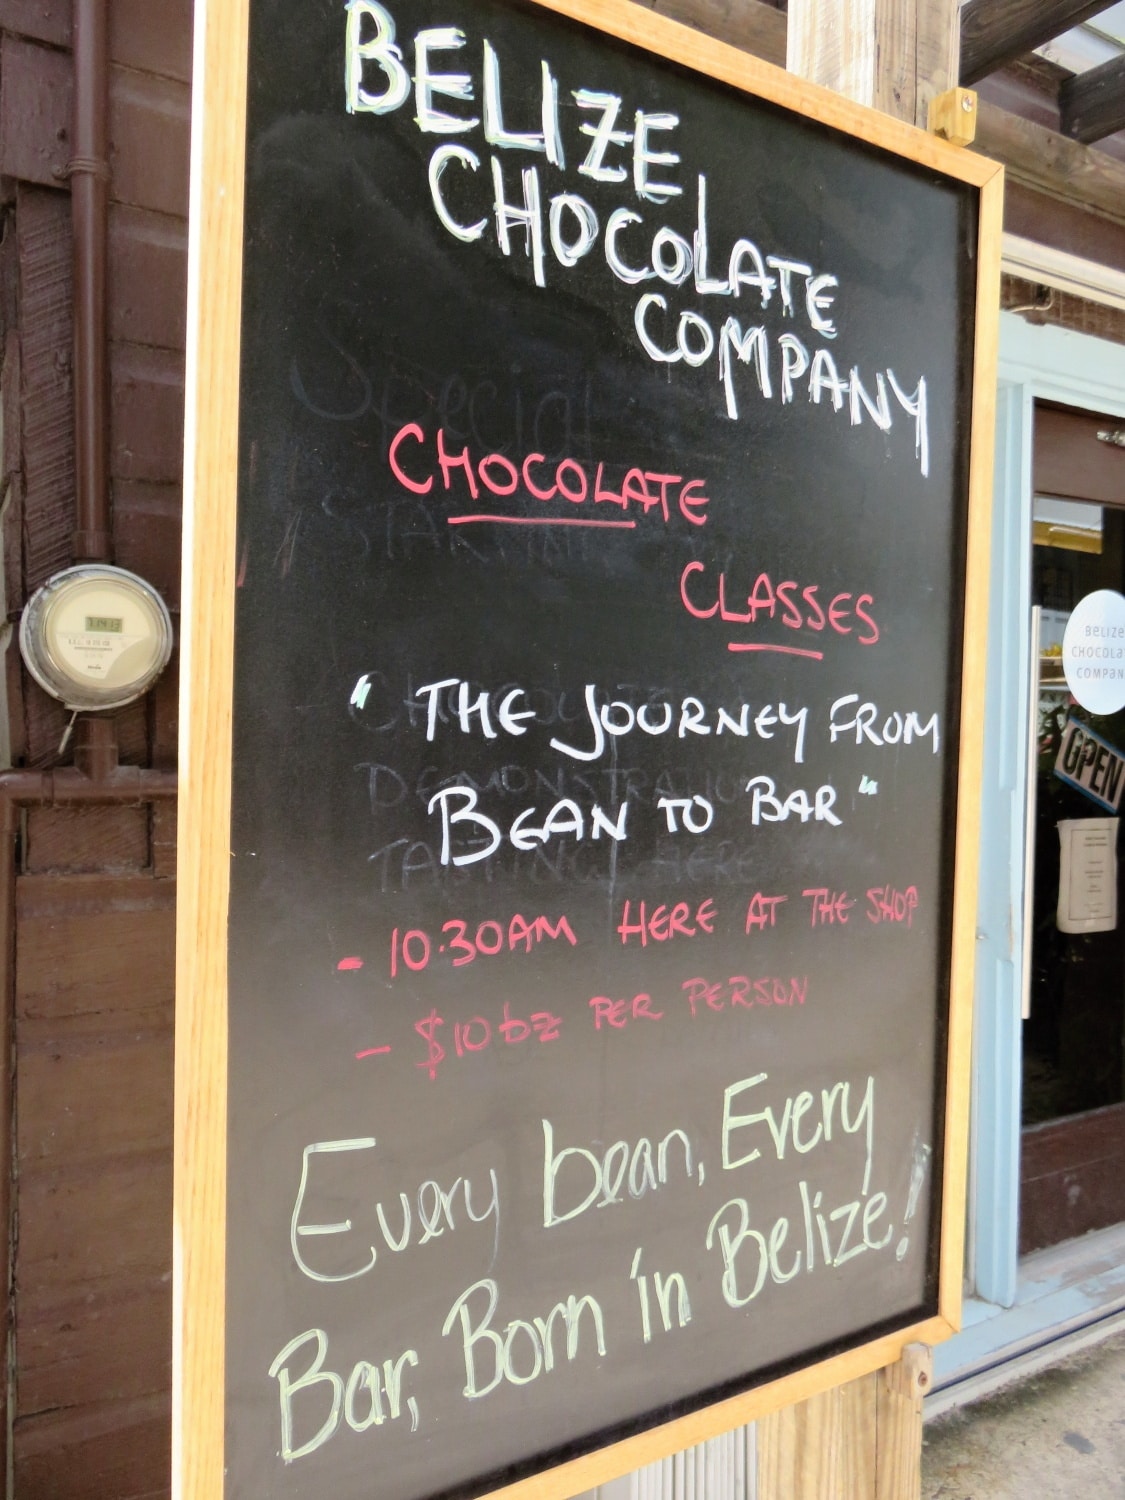 BELIZE
CHOCOLATE
COMPANY
Special
CHOCOLATE
CLASSES
"THE JOURNEY FROM
BEAN TO BAR"
DEMONSTRATION
TASTING HERE
- 10.30AM HERE AT THE SHOP
- $10bz PER PERSON
Every bean, Every
Bar, Born in Belize!
BELIZE
CHOCOLA
COMPAN
OPEN